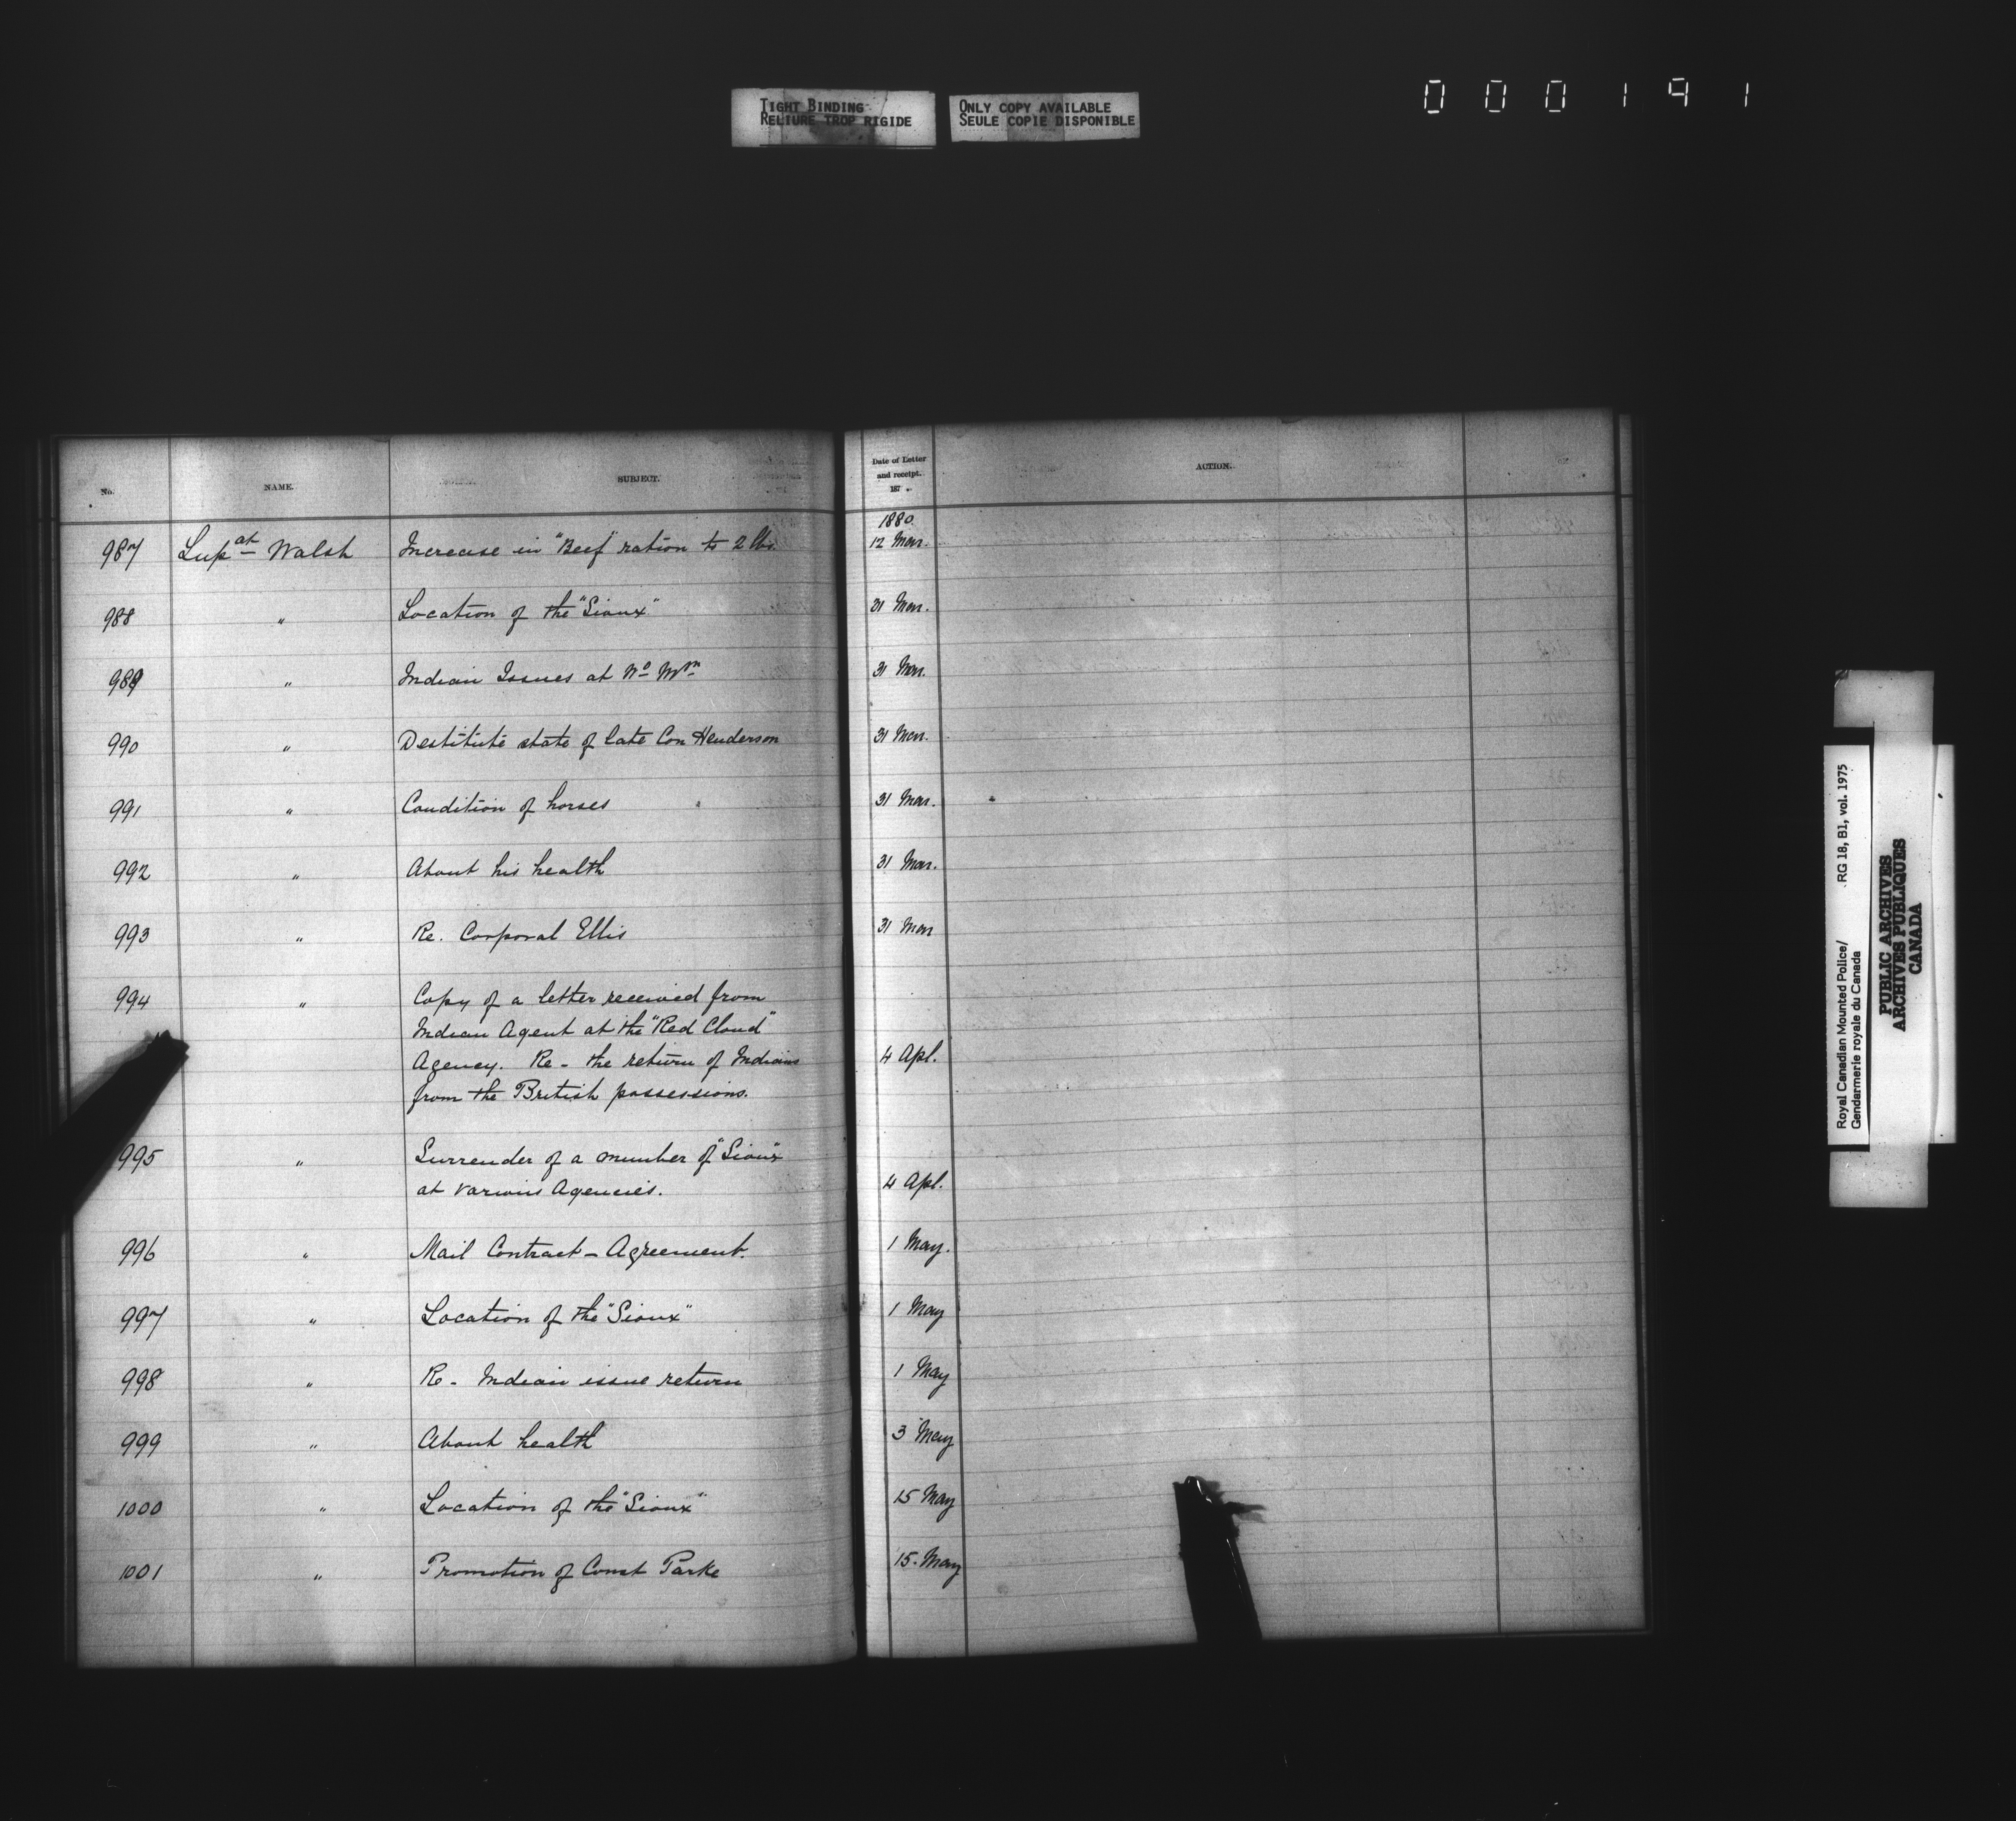 TIGHT BINDING
RELIURE TROP RIGIDE
ONLY COPY AVAILABLE
SEULE COPIE DISPONIBLE
000191
No. NAME. SUBJECT. Date of Letter and receipt. 187 . ACTION.
1880
987 Supat Walsh Increase in "Beef" ration to 2 lbs. 12 Mar.
988 " Location of the "Sioux" 31 Mar.
989 " Indian Issues at Wd Mtn 31 Mar.
990 " Destitute state of late Con Henderson 31 Mar.
991 " Condition of horses 31 Mar.
992 " About his health 31 Mar.
993 " Re. Corporal Ellis 31 Mar
994 " Copy of a letter received from
Indian Agent at the "Red Cloud"
Agency. Re - the return of Indians 4 Apl.
from the British possessions.
995 " Surrender of a number of "Sioux"
at various Agencies. 4 Apl.
996 " Mail Contract - Agreement. 1 May.
997 " Location of the "Sioux" 1 May
998 " Re - Indian issue return 1 May
999 " About health 3 May
1000 " Location of the "Sioux" 15 May
1001 " Promotion of Const Parke 15. May
Royal Canadian Mounted Police/ RG 18, B1, vol. 1975
Gendarmerie royale du Canada
PUBLIC ARCHIVES
ARCHIVES PUBLIQUES
CANADA